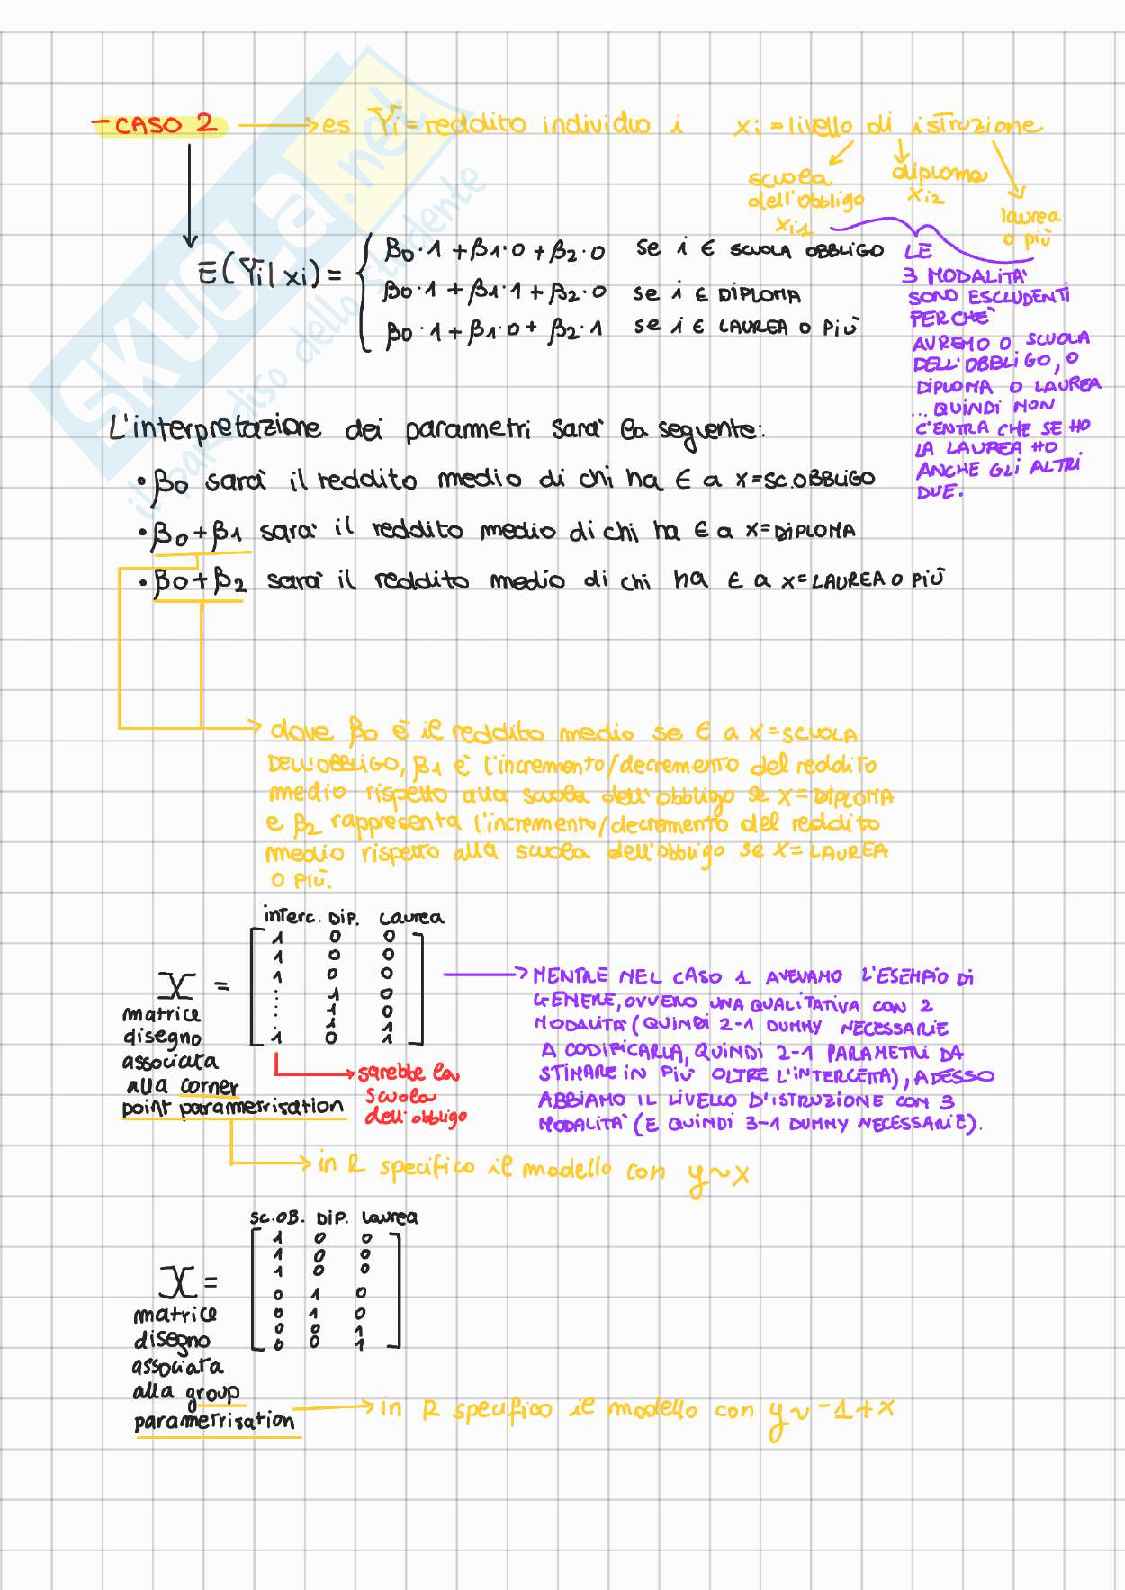 - CASO 2 → es Yi = reddito individuo i xi = livello di istruzione
scuola
dell'obbligo
xi1
diploma
xi2
laurea
o più
E(Yi|xi) =
β0·1 + β1·0 + β2·0 se i ∈ SCUOLA OBBLIGO
β0·1 + β1·1 + β2·0 se i ∈ DIPLOMA
β0·1 + β1·0 + β2·1 se i ∈ LAUREA O PIÙ
LE
3 MODALITA'
SONO ESCLUDENTI
PERCHE'
AVREMO O SCUOLA
DELL'OBBLIGO, O
DIPLOMA O LAUREA
... QUINDI NON
C'ENTRA CHE SE HO
LA LAUREA HO
ANCHE GLI ALTRI
DUE.
L'interpretazione dei parametri sara' la seguente:
• β0 sarà il reddito medio di chi ha ∈ a x=SC.OBBLIGO
• β0+β1 sara' il reddito medio di chi ha ∈ a x=DIPLOMA
• β0+β2 sara' il reddito medio di chi ha ∈ a x=LAUREA O PIÙ
dove β0 è il reddito medio se ∈ a x=SCUOLA
DELL'OBBLIGO, β1 è l'incremento/decremento del reddito
medio rispetto alla scuola dell'obbligo se x=DIPLOMA
e β2 rappresenta l'incremento/decremento del reddito
medio rispetto alla scuola dell'obbligo se x=LAUREA
O PIÙ.
interc. DIP. Laurea
1 0 0
1 0 0
1 0 0
: 1 0
: 1 0
: 1 1
1 0 1
X =
matrice
disegno
associata
alla corner
point parametrisation
sarebbe la
scuola
dell'obbligo
MENTRE NEL CASO 1 AVEVAMO L'ESEMPIO DI
GENERE, OVVERO UNA QUALITATIVA CON 2
MODALITA' (QUINDI 2-1 DUMMY NECESSARIE
A CODIFICARLA, QUINDI 2-1 PARAMETRI DA
STIMARE IN PIÙ OLTRE L'INTERCETTA), ADESSO
ABBIAMO IL LIVELLO D'ISTRUZIONE CON 3
MODALITA' (E QUINDI 3-1 DUMMY NECESSARIE).
in R specifico il modello con y~x
SC.OB. DIP. Laurea
1 0 0
1 0 0
1 0 0
0 1 0
0 1 0
0 0 1
0 0 1
X =
matrice
disegno
associata
alla group
parametrisation
in R specifico il modello con y~-1+x
SKUOLA.net
il paradiso dello studente